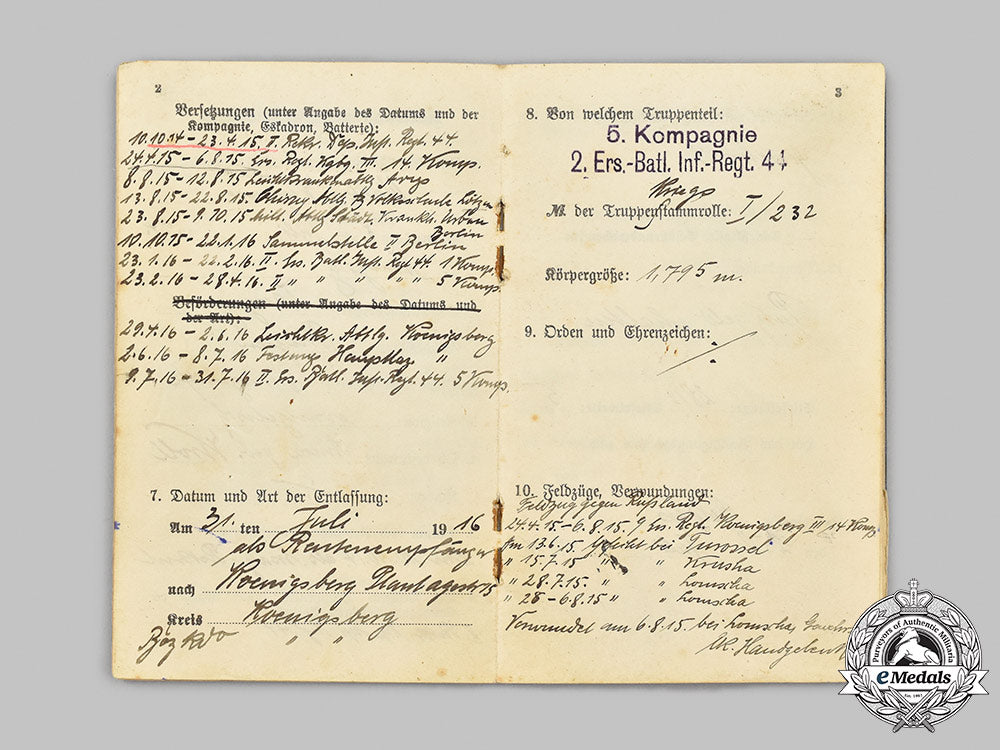 2
Versetzungen (unter Angabe des Datums und der
Kompagnie, Eskadron, Batterie):
10.10.14 – 23.4.15. II. Rekr. Dep. Inft. Regt. 44.
24.4.15 – 6.8.15. Ers. Regt. Kgbg. III. 14 Komp.
8.8.15 – 12.8.15 Leichtkrankenabtlg Arys
13.8.15 – 22.8.15. Abtlg. Volksschule Lötzen
23.8.15 – 9.10.15 Abtlg Städt. Krankh. Urban
Berlin
10.10.15 – 22.1.16 Sammelstelle II Berlin
23.1.16 – 22.2.16. II Ers. Batl. Inft. Regt 44. 1 Komp.
23.2.16 – 28.4.16. II " " " " " 5 Komp.
Beförderungen (unter Angabe des Datums und
der Art):
29.4.16 – 2.6.16 Leichtkr. Abtlg. Koenigsberg
2.6.16 – 8.7.16 Festungs Hauptlaz. "
9.7.16 – 31.7.16 II. Ers. Batl. Inft. Regt. 44. 5 Komp.
7. Datum und Art der Entlassung:
Am 31. ten Juli 1916
als Rentenempfänger
nach Koenigsberg
Kreis Koenigsberg
Bezkdo " "
3
8. Von welchem Truppenteil:
5. Kompagnie
2. Ers.-Batl. Inf.-Regt. 44
Kriegs
№ der Truppenstammrolle: I/232
Körpergröße: 1,795 m.
9. Orden und Ehrenzeichen: ./.
10. Feldzüge, Verwundungen:
Feldzug gegen Rußland
24.4.15 – 6.8.15. 9. Ers. Regt. Koenigsberg III 14 Komp
Am 13.6.15. Gefecht bei Turossel
" 15.7.15 " " Krusha
" 28.7.15. " " Lomscha
" 28 – 6.8.15 " " Lomscha
Verwundet am 6.8.15 bei Lomscha,
Handgelenk
Purveyors of Authentic Militaria
eMedals